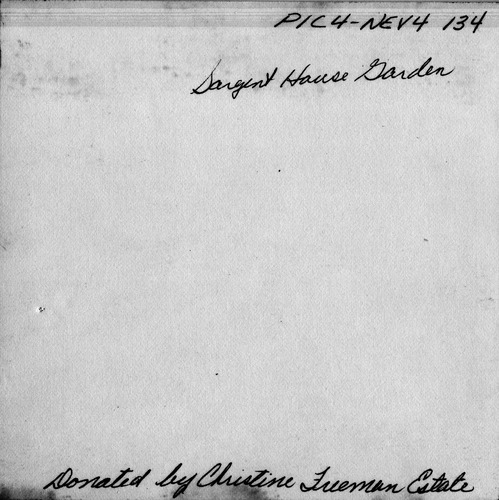 PIC4-NEV4 134
Sargent House Garden
Donated by Christine Freeman Estate